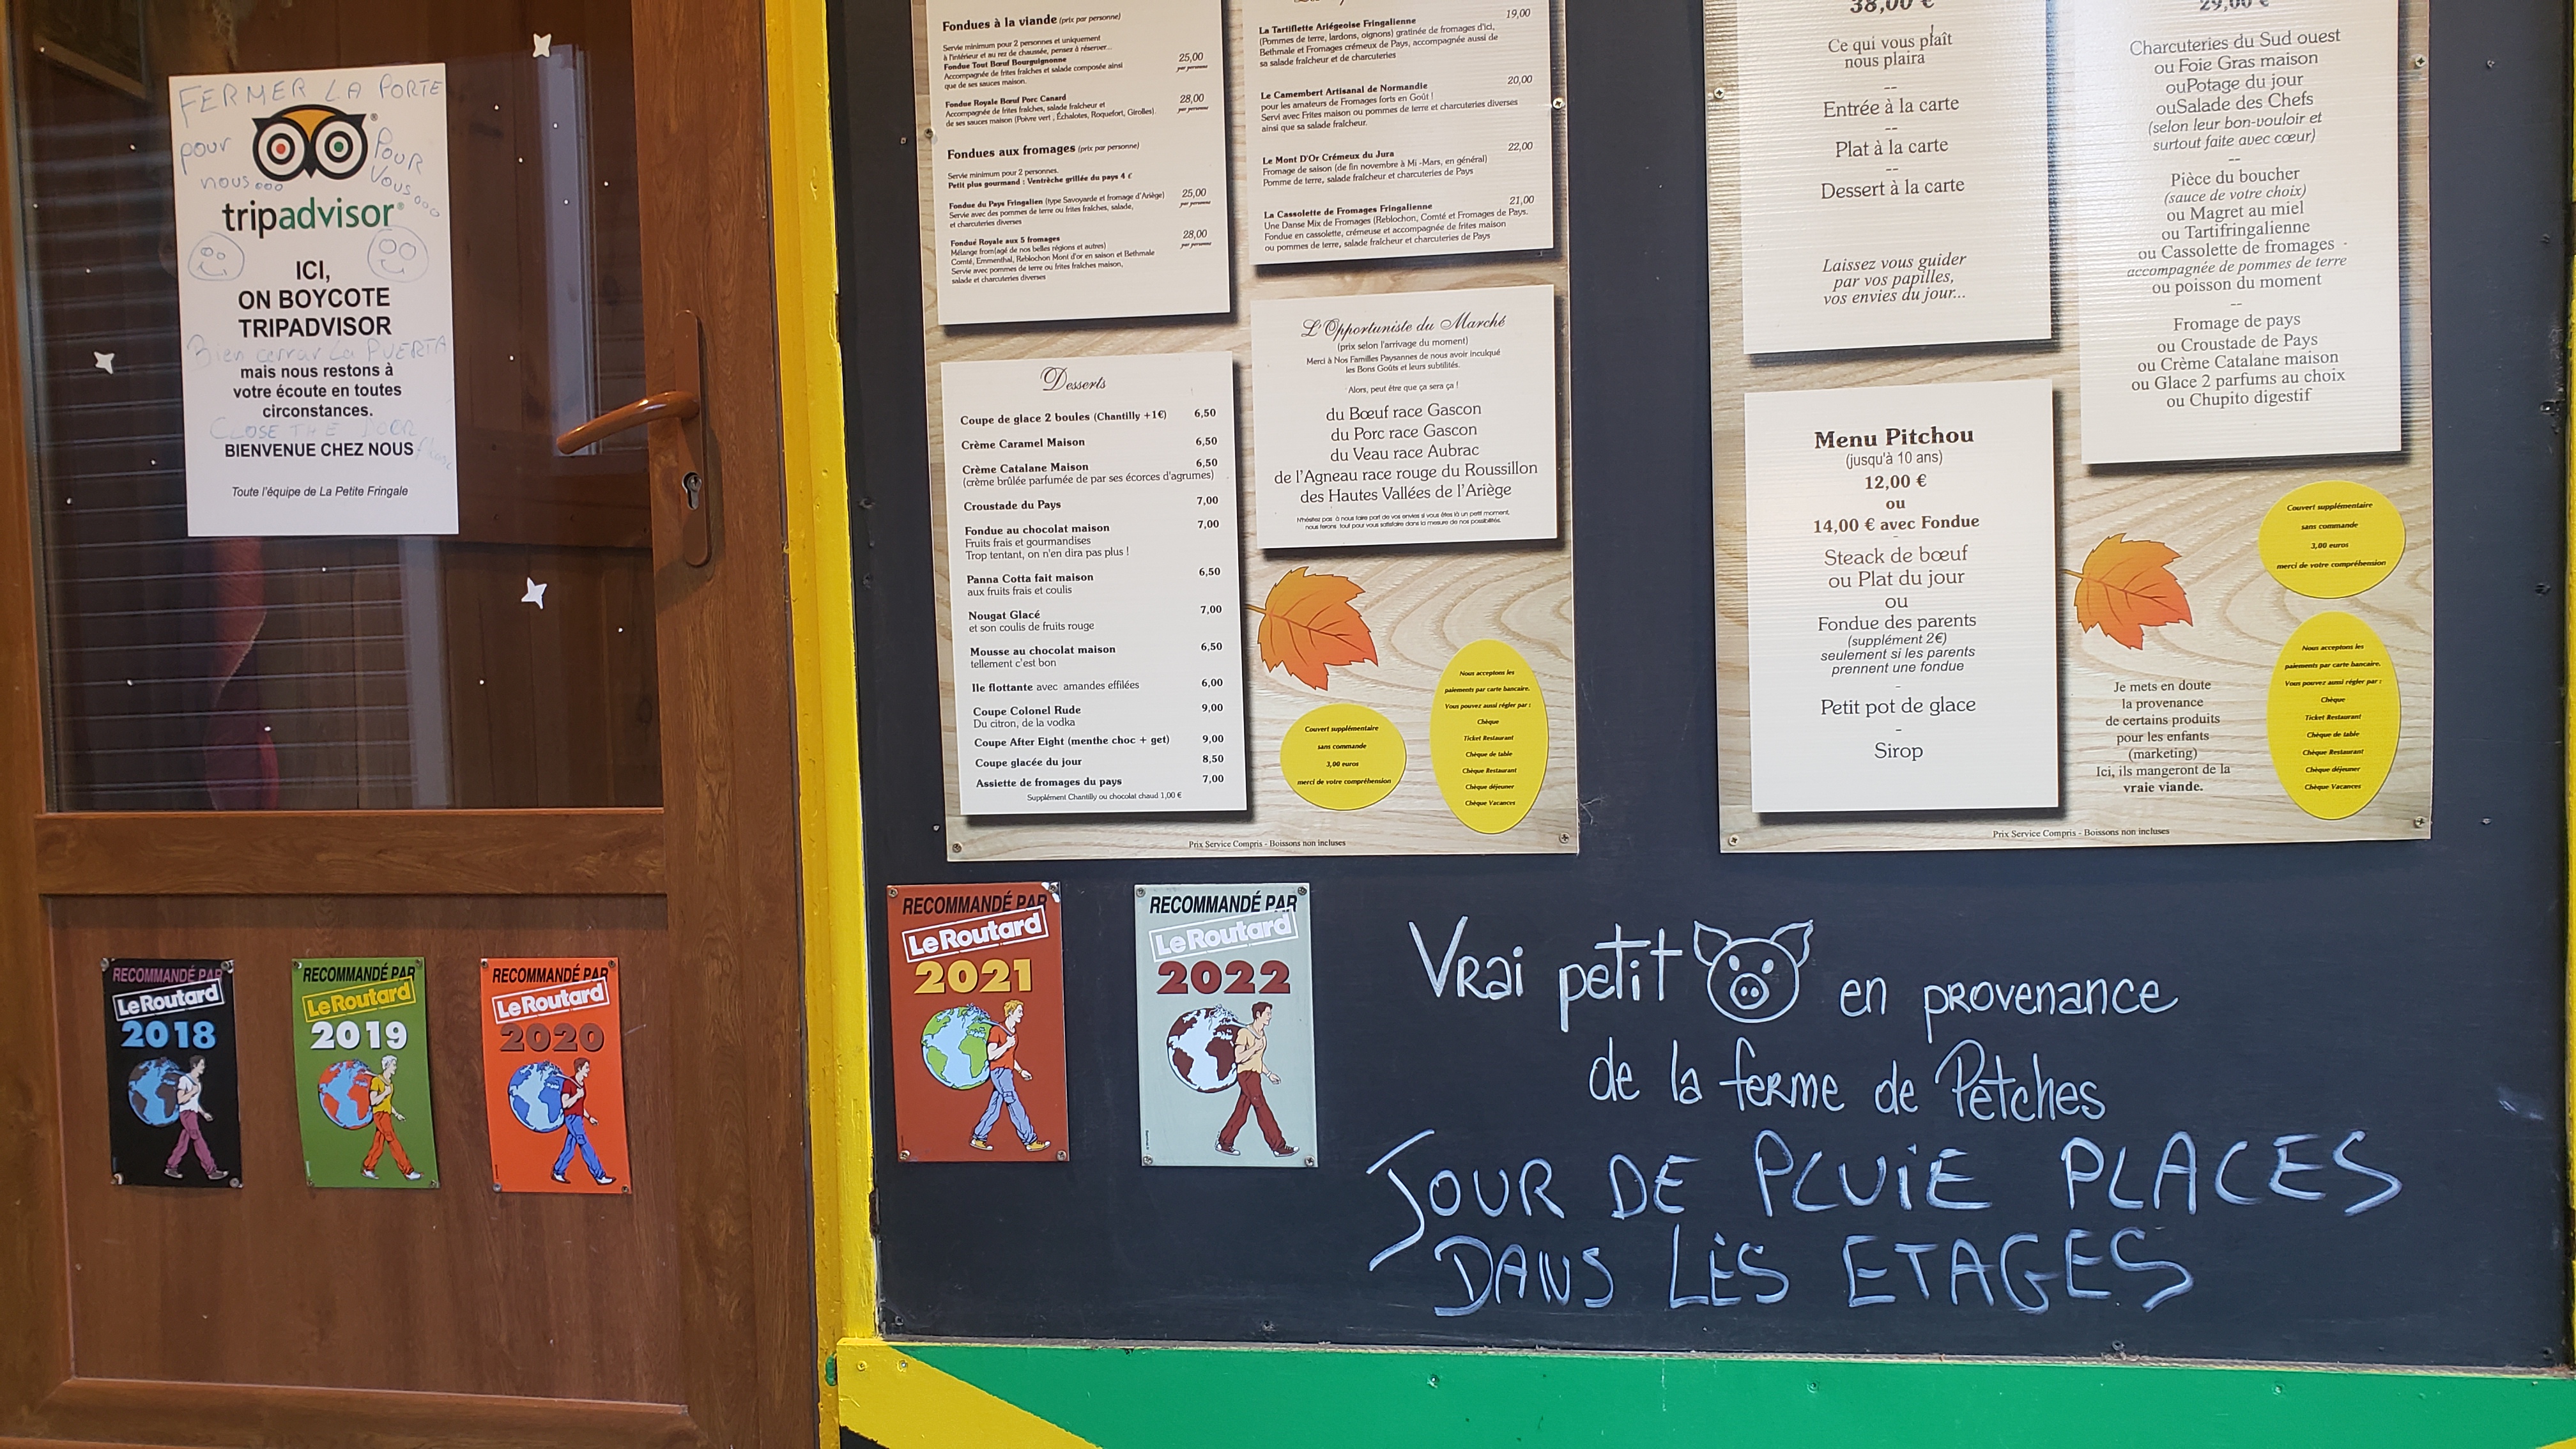 FERMER LA PORTE
pour
nous...
POUR
Vous...
tripadvisor®
ICI,
ON BOYCOTE
TRIPADVISOR
Bien cerrar La PUERTA
mais nous restons à
votre écoute en toutes
circonstances.
CLOSE THE DOOR
BIENVENUE CHEZ NOUS
Toute l'équipe de La Petite Fringale
RECOMMANDÉ PAR
Le Routard
2018
RECOMMANDÉ PAR
Le Routard
2019
RECOMMANDÉ PAR
Le Routard
2020
Fondues à la viande (prix par personne)
Servie minimum pour 2 personnes et uniquement
à l'intérieur et au rez de chaussée, pensez à réserver...
Fondue Tout Bœuf Bourguignonne 25,00
Accompagnée de frites fraîches et salade composée ainsi par personne
que de ses sauces maison.
Fondue Royale Bœuf Porc Canard 28,00
Accompagnée de frites fraîches, salade fraîcheur et par personne
de ses sauces maison (Poivre vert , Échalotes, Roquefort, Girolles).
Fondues aux fromages (prix par personne)
Servie minimum pour 2 personnes.
Petit plus gourmand : Ventrèche grillée du pays 4 €
Fondue du Pays Fringalien (type Savoyarde et fromage d'Ariège) 25,00
Servie avec des pommes de terre ou frites fraîches, salade, par personne
et charcuteries diverses
Fondue Royale aux 5 fromages 28,00
Mélange from(agé de nos belles régions et autres) par personne
Comté, Emmenthal, Reblochon Mont d'or en saison et Bethmale
Servie avec pommes de terre ou frites fraîches maison,
salade et charcuteries diverses
Desserts
Coupe de glace 2 boules (Chantilly +1€) 6,50
Crème Caramel Maison 6,50
Crème Catalane Maison 6,50
(crème brûlée parfumée de par ses écorces d'agrumes)
Croustade du Pays 7,00
Fondue au chocolat maison 7,00
Fruits frais et gourmandises
Trop tentant, on n'en dira pas plus !
Panna Cotta fait maison 6,50
aux fruits frais et coulis
Nougat Glacé 7,00
et son coulis de fruits rouge
Mousse au chocolat maison 6,50
tellement c'est bon
Ile flottante avec amandes effilées 6,00
Coupe Colonel Rude 9,00
Du citron, de la vodka
Coupe After Eight (menthe choc + get) 9,00
Coupe glacée du jour 8,50
Assiette de fromages du pays 7,00
Supplément Chantilly ou chocolat chaud 1,00 €
La Tartiflette Ariégeoise Fringalienne 19,00
(Pommes de terre, lardons, oignons) gratinée de fromages d'ici,
Bethmale et Fromages crémeux de Pays, accompagnée aussi de
sa salade fraîcheur et de charcuteries
Le Camembert Artisanal de Normandie 20,00
pour les amateurs de Fromages forts en Goût !
Servi avec Frites maison ou pommes de terre et charcuteries diverses
ainsi que sa salade fraîcheur.
Le Mont D'Or Crémeux du Jura 22,00
Fromage de saison (de fin novembre à Mi -Mars, en général)
Pomme de terre, salade fraîcheur et charcuteries de Pays
La Cassolette de Fromages Fringalienne 21,00
Une Danse Mix de Fromages (Reblochon, Comté et Fromages de Pays.
Fondue en cassolette, crémeuse et accompagnée de frites maison
ou pommes de terre, salade fraîcheur et charcuteries de Pays
L'Opportuniste du Marché
(prix selon l'arrivage du moment)
Merci à Nos Familles Paysannes de nous avoir inculqué
les Bons Goûts et leurs subtilités.
Alors, peut être que ça sera ça !
du Bœuf race Gascon
du Porc race Gascon
du Veau race Aubrac
de l'Agneau race rouge du Roussillon
des Hautes Vallées de l'Ariège
N'hésitez pas à nous faire part de vos envies si vous êtes là un petit moment,
nous ferons tout pour vous satisfaire dans la mesure de nos possibilités.
Couvert supplémentaire
sans commande
3,00 euros
merci de votre compréhension
Nous acceptons les
paiements par carte bancaire.
Vous pouvez aussi régler par :
Chèque
Ticket Restaurant
Chèque de table
Chèque Restaurant
Chèque déjeuner
Chèque Vacances
Prix Service Compris - Boissons non incluses
38,00 €
Ce qui vous plaît
nous plaira
--
Entrée à la carte
--
Plat à la carte
--
Dessert à la carte
Laissez vous guider
par vos papilles,
vos envies du jour...
Menu Pitchou
(jusqu'à 10 ans)
12,00 €
ou
14,00 € avec Fondue
-
Steack de bœuf
ou Plat du jour
ou
Fondue des parents
(supplément 2€)
seulement si les parents
prennent une fondue
-
Petit pot de glace
-
Sirop
29,00 €
Charcuteries du Sud ouest
ou Foie Gras maison
ouPotage du jour
ouSalade des Chefs
(selon leur bon-vouloir et
surtout faite avec cœur)
--
Pièce du boucher
(sauce de votre choix)
ou Magret au miel
ou Tartifringalienne
ou Cassolette de fromages
accompagnée de pommes de terre
ou poisson du moment
--
Fromage de pays
ou Croustade de Pays
ou Crème Catalane maison
ou Glace 2 parfums au choix
ou Chupito digestif
Couvert supplémentaire
sans commande
3,00 euros
merci de votre compréhension
Je mets en doute
la provenance
de certains produits
pour les enfants
(marketing)
Ici, ils mangeront de la
vraie viande.
Nous acceptons les
paiements par carte bancaire.
Vous pouvez aussi régler par :
Chèque
Ticket Restaurant
Chèque de table
Chèque Restaurant
Chèque déjeuner
Chèque Vacances
Prix Service Compris - Boissons non incluses
RECOMMANDÉ PAR
Le Routard
2021
RECOMMANDÉ PAR
Le Routard
2022
Vrai petit en provenance
de la ferme de Petches
JOUR DE PLUiE PLACES
DANS LES ETAGES